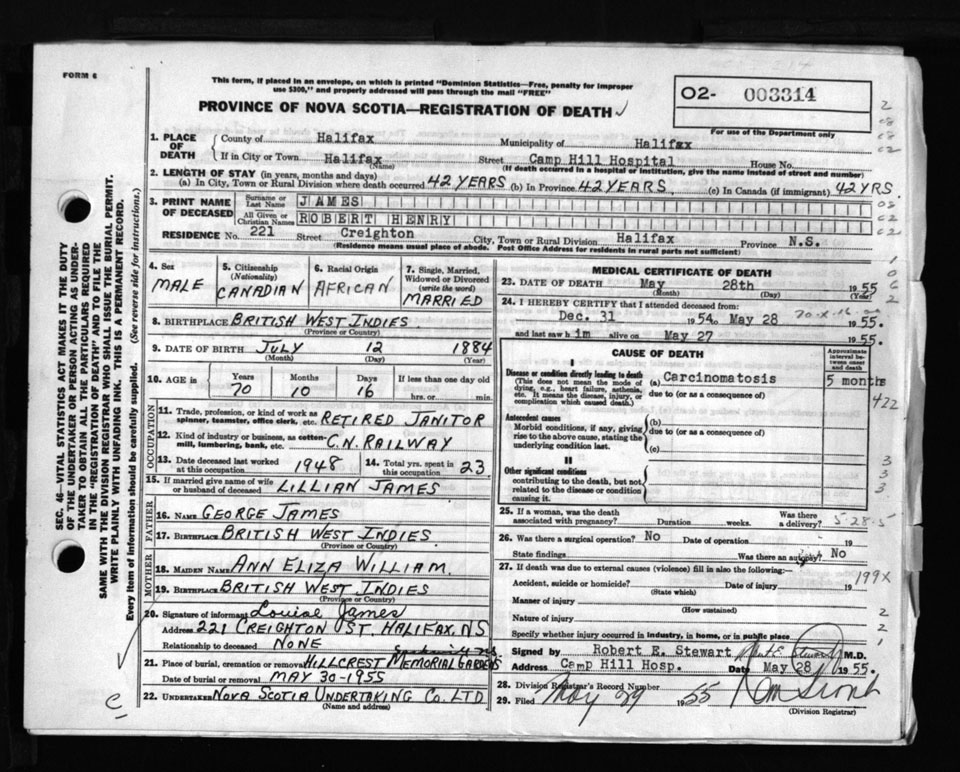 FORM 6
This form, if placed in an envelope, on which is printed "Dominion Statistics—Free, penalty for improper
use $300," and properly addressed will pass through the mail "FREE"
PROVINCE OF NOVA SCOTIA—REGISTRATION OF DEATH
02- 003314
For use of the Department only
1. PLACE OF DEATH { County of Halifax Municipality of Halifax
If in City or Town Halifax (Name) Street Camp Hill Hospital House No.
(If death occurred in a hospital or institution, give the name instead of street and number)
2. LENGTH OF STAY (in years, months and days)
(a) In City, Town or Rural Division where death occurred 42 YEARS (b) In Province 42 YEARS, (c) In Canada (if immigrant) 42 YRS
3. PRINT NAME OF DECEASED { Surname or Last Name JAMES
All Given or Christian Names ROBERT HENRY
RESIDENCE No. 221 Street Creighton City, Town or Rural Division Halifax Province N.S.
(Residence means usual place of abode. Post Office Address for residents in rural parts not sufficient)
4. Sex MALE
5. Citizenship (Nationality) CANADIAN
6. Racial Origin AFRICAN
7. Single, Married, Widowed or Divorced (write the word) MARRIED
8. BIRTHPLACE BRITISH WEST INDIES
(Province or Country)
9. DATE OF BIRTH JULY 12 1884
(Month) (Day) (Year)
10. AGE in Years 70 Months 10 Days 16 If less than one day old
hrs. or min.
OCCUPATION
11. Trade, profession, or kind of work as spinner, teamster, office clerk, etc. RETIRED JANITOR
12. Kind of industry or business, as cotton-mill, lumbering, bank, etc. C.N. RAILWAY
13. Date deceased last worked at this occupation 1948
14. Total yrs. spent in this occupation 23
15. If married give name of wife or husband of deceased LILLIAN JAMES
FATHER
16. NAME GEORGE JAMES
17. BIRTHPLACE BRITISH WEST INDIES
(Province or Country)
MOTHER
18. MAIDEN NAME ANN ELIZA WILLIAM
19. BIRTHPLACE BRITISH WEST INDIES
(Province or Country)
20. Signature of informant Louise James
Address 221 CREIGHTON ST, HALIFAX, NS
Relationship to deceased NONE
21. Place of burial, cremation or removal HILLCREST MEMORIAL GARDENS
Date of burial or removal MAY 30-1955
22. UNDERTAKER NOVA SCOTIA UNDERTAKING CO. LTD
(Name and address)
MEDICAL CERTIFICATE OF DEATH
23. DATE OF DEATH May 28th 1955
(Month) (Day) (Year)
24. I HEREBY CERTIFY that I attended deceased from:
Dec. 31 1954 to May 28 1955.
and last saw him alive on May 27 1955.
CAUSE OF DEATH
Approximate interval between onset and death
I
Disease or condition directly leading to death
(This does not mean the mode of dying, e.g., heart failure, asthenia, etc. It means the disease, injury, or complication which caused death.)
(a) Carcinomatosis 5 months
due to (or as a consequence of)
Antecedent causes
Morbid conditions, if any, giving rise to the above cause, stating the underlying condition last.
(b)
due to (or as a consequence of)
(c)
II
Other significant conditions
contributing to the death, but not related to the disease or condition causing it.
422
25. If a woman, was the death associated with pregnancy? Duration weeks. Was there a delivery?
26. Was there a surgical operation? No Date of operation 19
State findings Was there an autopsy? No
27. If death was due to external causes (violence) fill in also the following:—
Accident, suicide or homicide? Date of injury 19
(State which)
199X
Manner of injury
(How sustained)
Nature of injury
Specify whether injury occurred in industry, in home, or in public place
Signed by Robert E. Stewart M.D.
Address Camp Hill Hosp. Date May 28 1955.
28. Division Registrar's Record Number
29. Filed May 29 1955
(Division Registrar)
SEC. 46—VITAL STATISTICS ACT MAKES IT THE DUTY
OF THE UNDERTAKER OR PERSON ACTING AS UNDER-
TAKER TO OBTAIN ALL THE PARTICULARS REQUIRED
IN THE "REGISTRATION OF DEATH" AND TO FILE THE
SAME WITH THE DIVISION REGISTRAR WHO SHALL ISSUE THE BURIAL PERMIT.
WRITE PLAINLY WITH UNFADING INK. THIS IS A PERMANENT RECORD.
Every item of information should be carefully supplied. (See reverse side for instructions.)